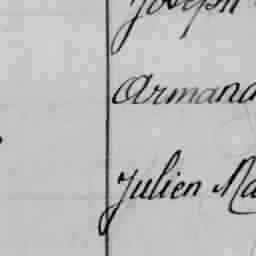 Joseph
Armand
Julien Ma